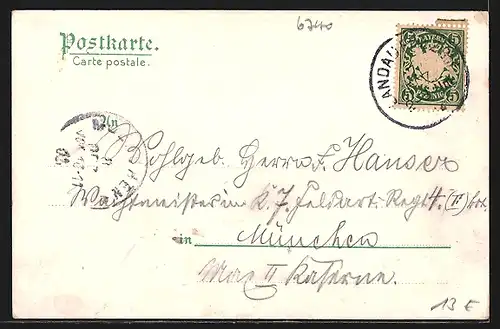 6740
Postkarte.
Carte postale.
BAYERN
5 5
ANDAU
An
Wohlgeb. Herrn F. Hauser
Wachtmeister im K. 7. Feldart. Regt.
in München
Max II Kaserne.
13 E